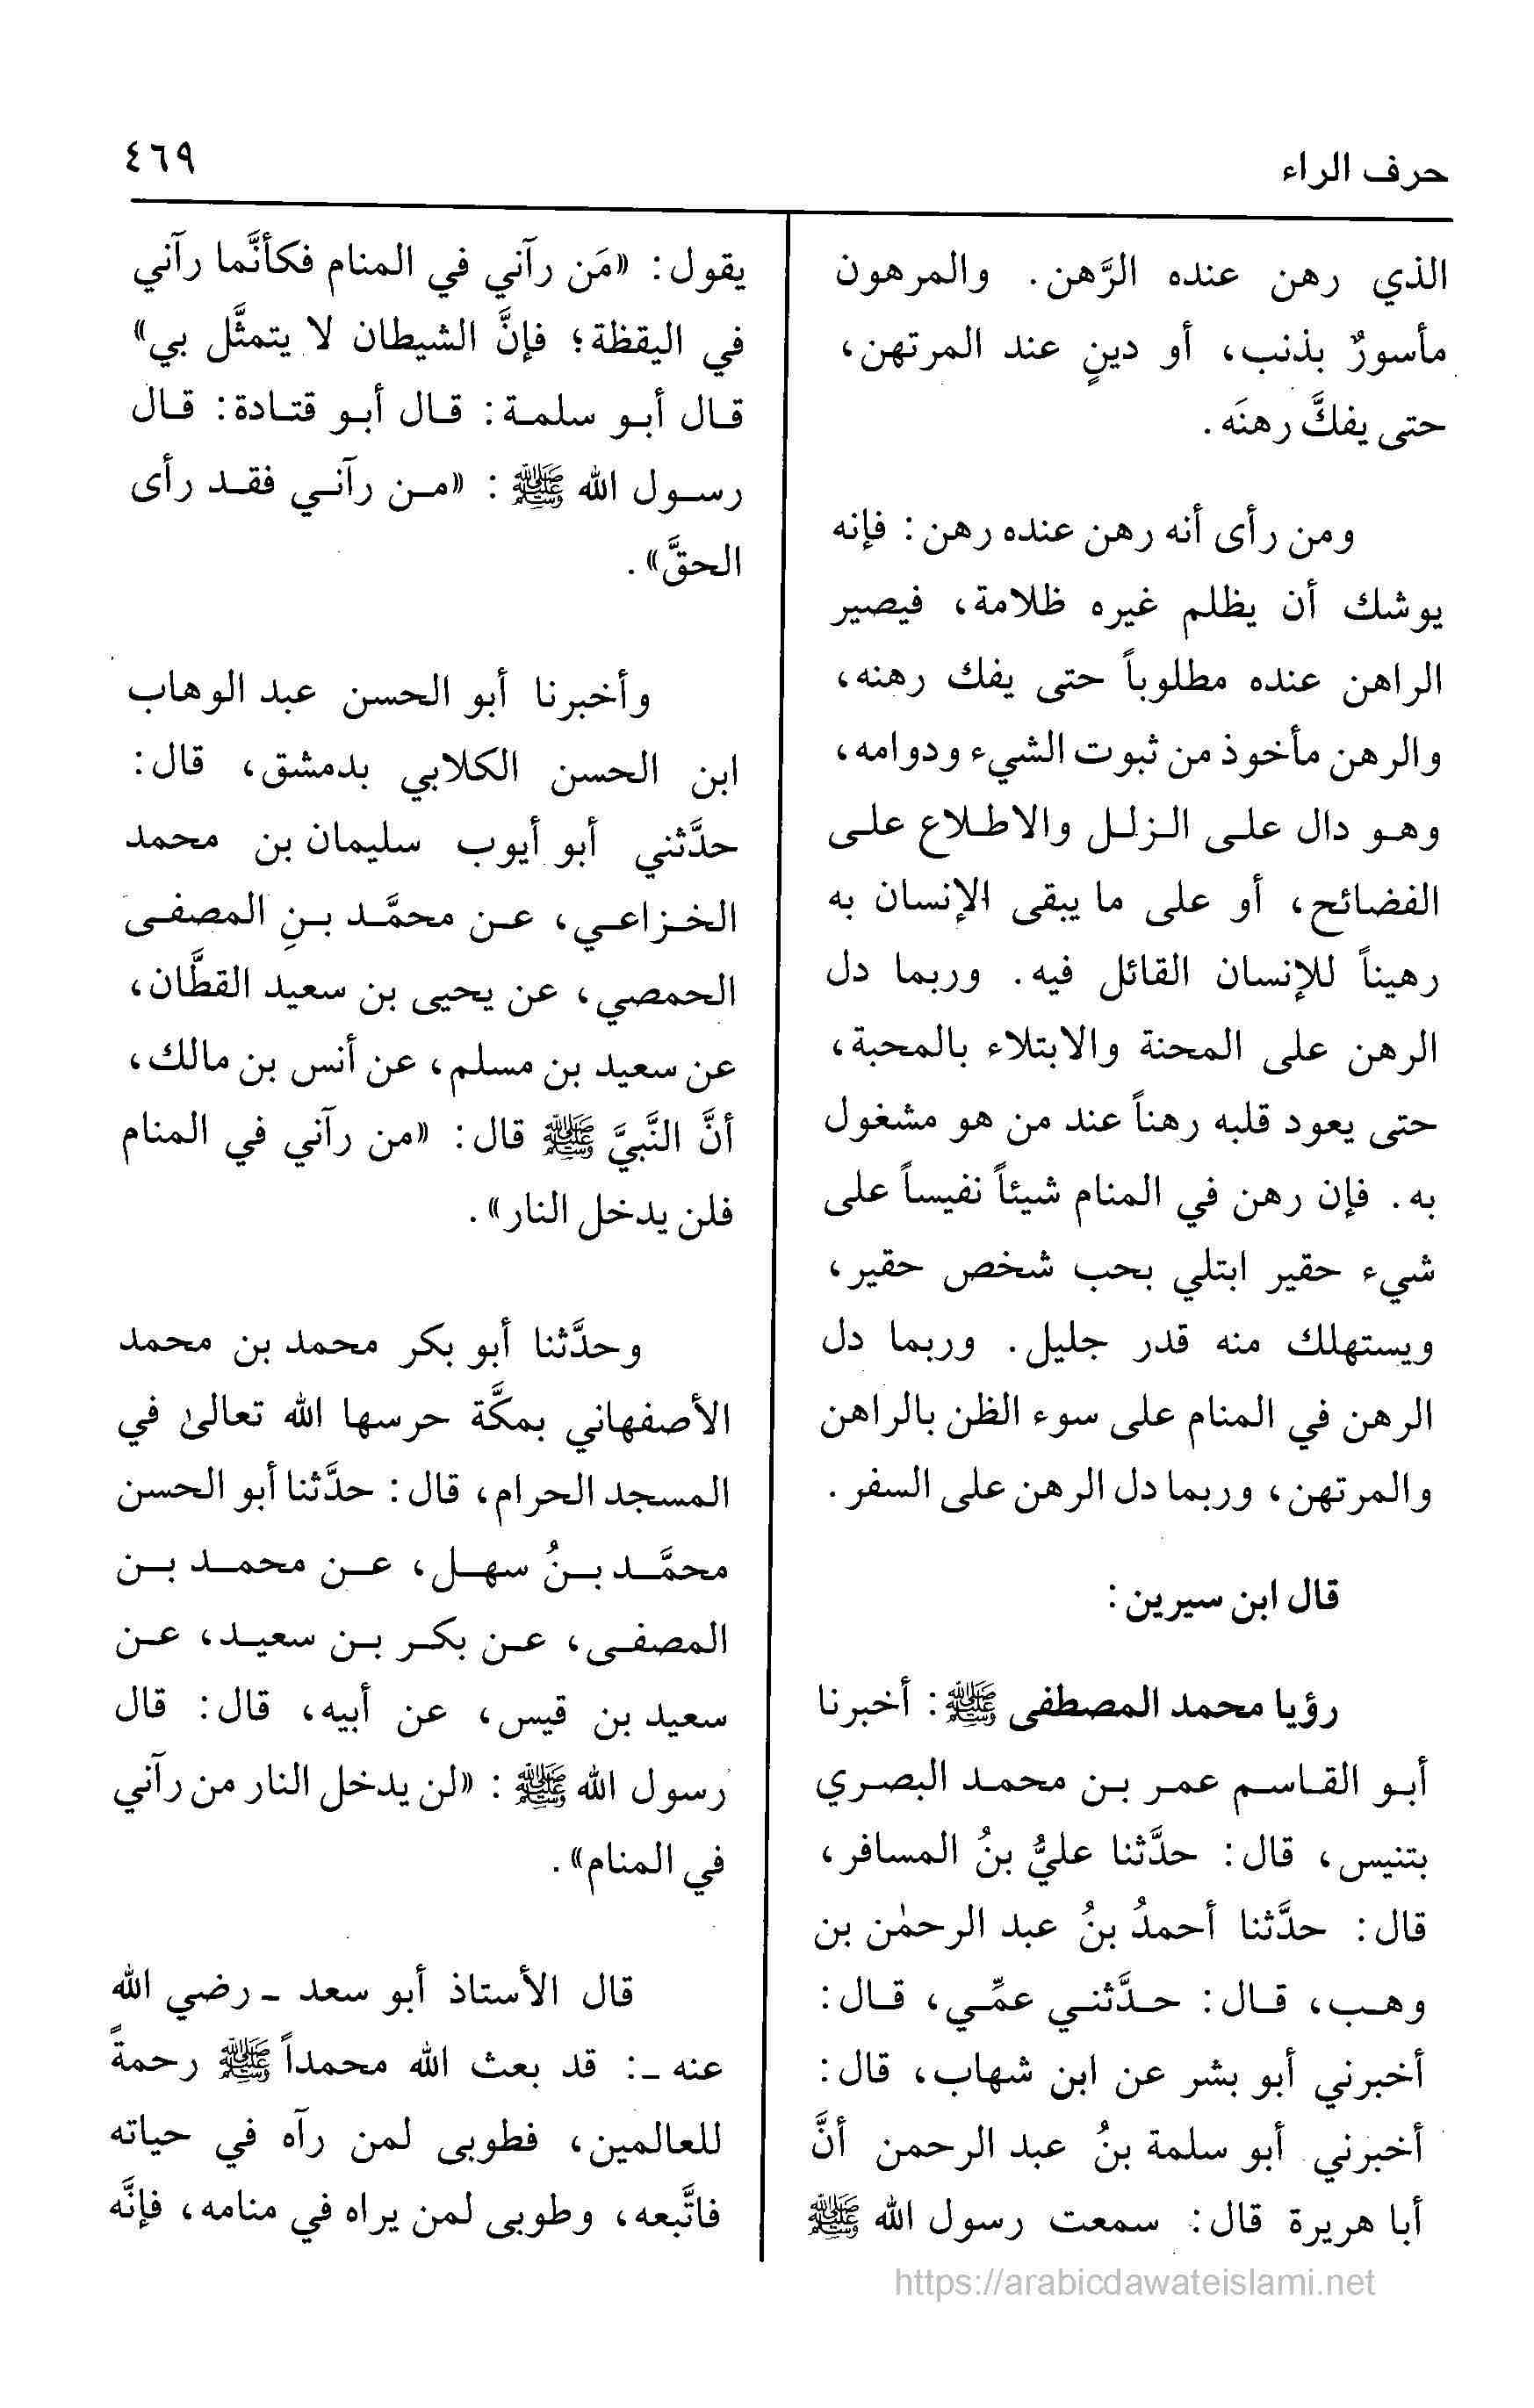 حرف الراء
٤٦٩
الذي رهن عنده الرَّهن. والمرهون
مأسورٌ بذنب، أو دينٍ عند المرتهن،
حتى يفكَّ رهنَه.
ومن رأى أنه رهن عنده رهن: فإنه
يوشك أن يظلم غيره ظلامة، فيصير
الراهن عنده مطلوباً حتى يفك رهنه،
والرهن مأخوذ من ثبوت الشيء ودوامه،
وهو دال على الزلل والاطلاع على
الفضائح، أو على ما يبقى الإنسان به
رهيناً للإنسان القائل فيه. وربما دل
الرهن على المحنة والابتلاء بالمحبة،
حتى يعود قلبه رهناً عند من هو مشغول
به. فإن رهن في المنام شيئاً نفيساً على
شيء حقير ابتلي بحب شخص حقير،
ويستهلك منه قدر جليل. وربما دل
الرهن في المنام على سوء الظن بالراهن
والمرتهن، وربما دل الرهن على السفر.
قال ابن سيرين:
رؤيا محمد المصطفى ﷺ: أخبرنا
أبو القاسم عمر بن محمد البصري
بتنيس، قال: حدَّثنا عليُّ بنُ المسافر،
قال: حدَّثنا أحمدُ بنُ عبد الرحمٰن بن
وهب، قال: حدَّثني عمِّي، قال:
أخبرني أبو بشر عن ابن شهاب، قال:
أخبرني أبو سلمة بنُ عبد الرحمن أنَّ
أبا هريرة قال: سمعت رسول الله ﷺ
يقول: «مَن رآني في المنام فكأنَّما رآني
في اليقظة؛ فإنَّ الشيطان لا يتمثَّل بي»
قال أبو سلمة: قال أبو قتادة: قال
رسول الله ﷺ: «من رآني فقد رأى
الحقَّ».
وأخبرنا أبو الحسن عبد الوهاب
ابن الحسن الكلابي بدمشق، قال:
حدَّثني أبو أيوب سليمان بن محمد
الخزاعي، عن محمَّد بنِ المصفى
الحمصي، عن يحيى بن سعيد القطَّان،
عن سعيد بن مسلم، عن أنس بن مالك،
أنَّ النَّبيَّ ﷺ قال: «من رآني في المنام
فلن يدخل النار».
وحدَّثنا أبو بكر محمد بن محمد
الأصفهاني بمكَّة حرسها الله تعالىٰ في
المسجد الحرام، قال: حدَّثنا أبو الحسن
محمَّد بنُ سهل، عن محمد بن
المصفى، عن بكر بن سعيد، عن
سعيد بن قيس، عن أبيه، قال: قال
رسول الله ﷺ: «لن يدخل النار من رآني
في المنام».
قال الأستاذ أبو سعد ـ رضي الله
عنه ـ: قد بعث الله محمداً ﷺ رحمةً
للعالمين، فطوبى لمن رآه في حياته
فاتَّبعه، وطوبى لمن يراه في منامه، فإنَّه
https://arabicdawateislami.net